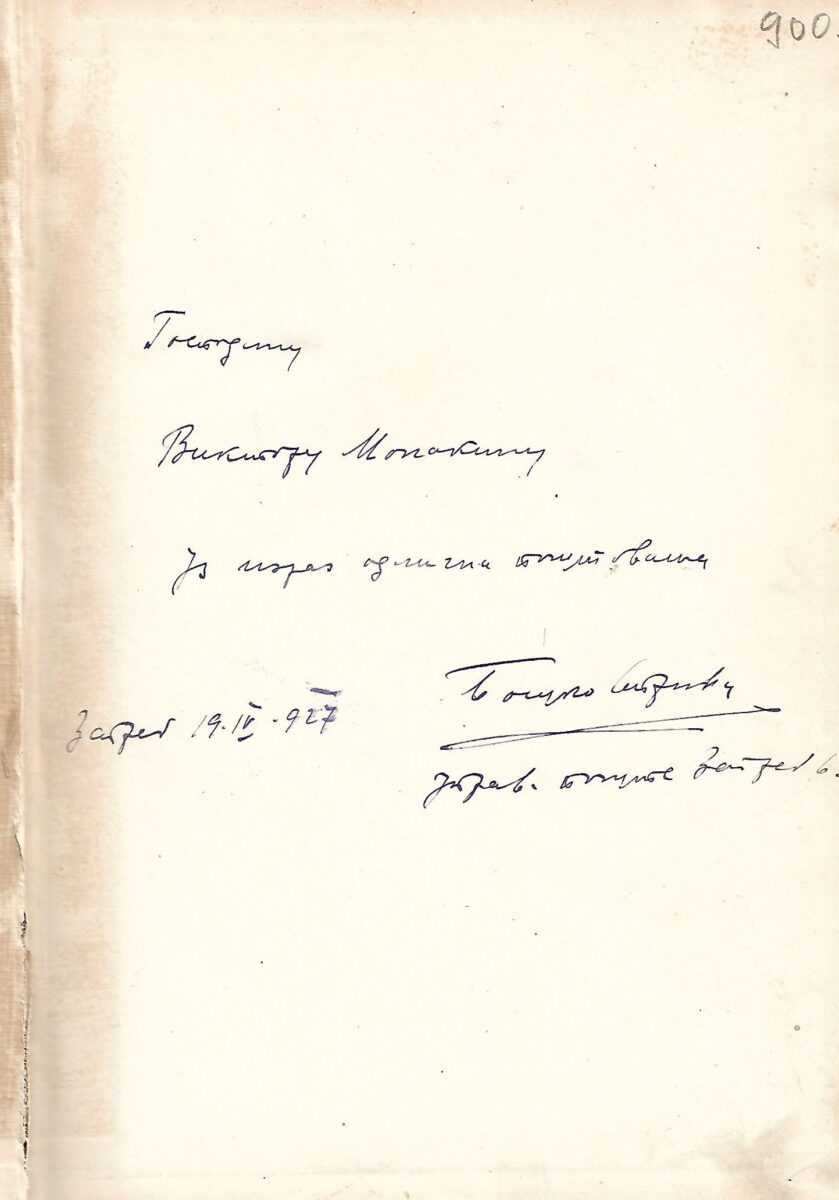 900.
Господину
Виктору Монакину
Уз израз одлична поштовања
Загреб 19.IV.927
управ. поште Загреб 6.